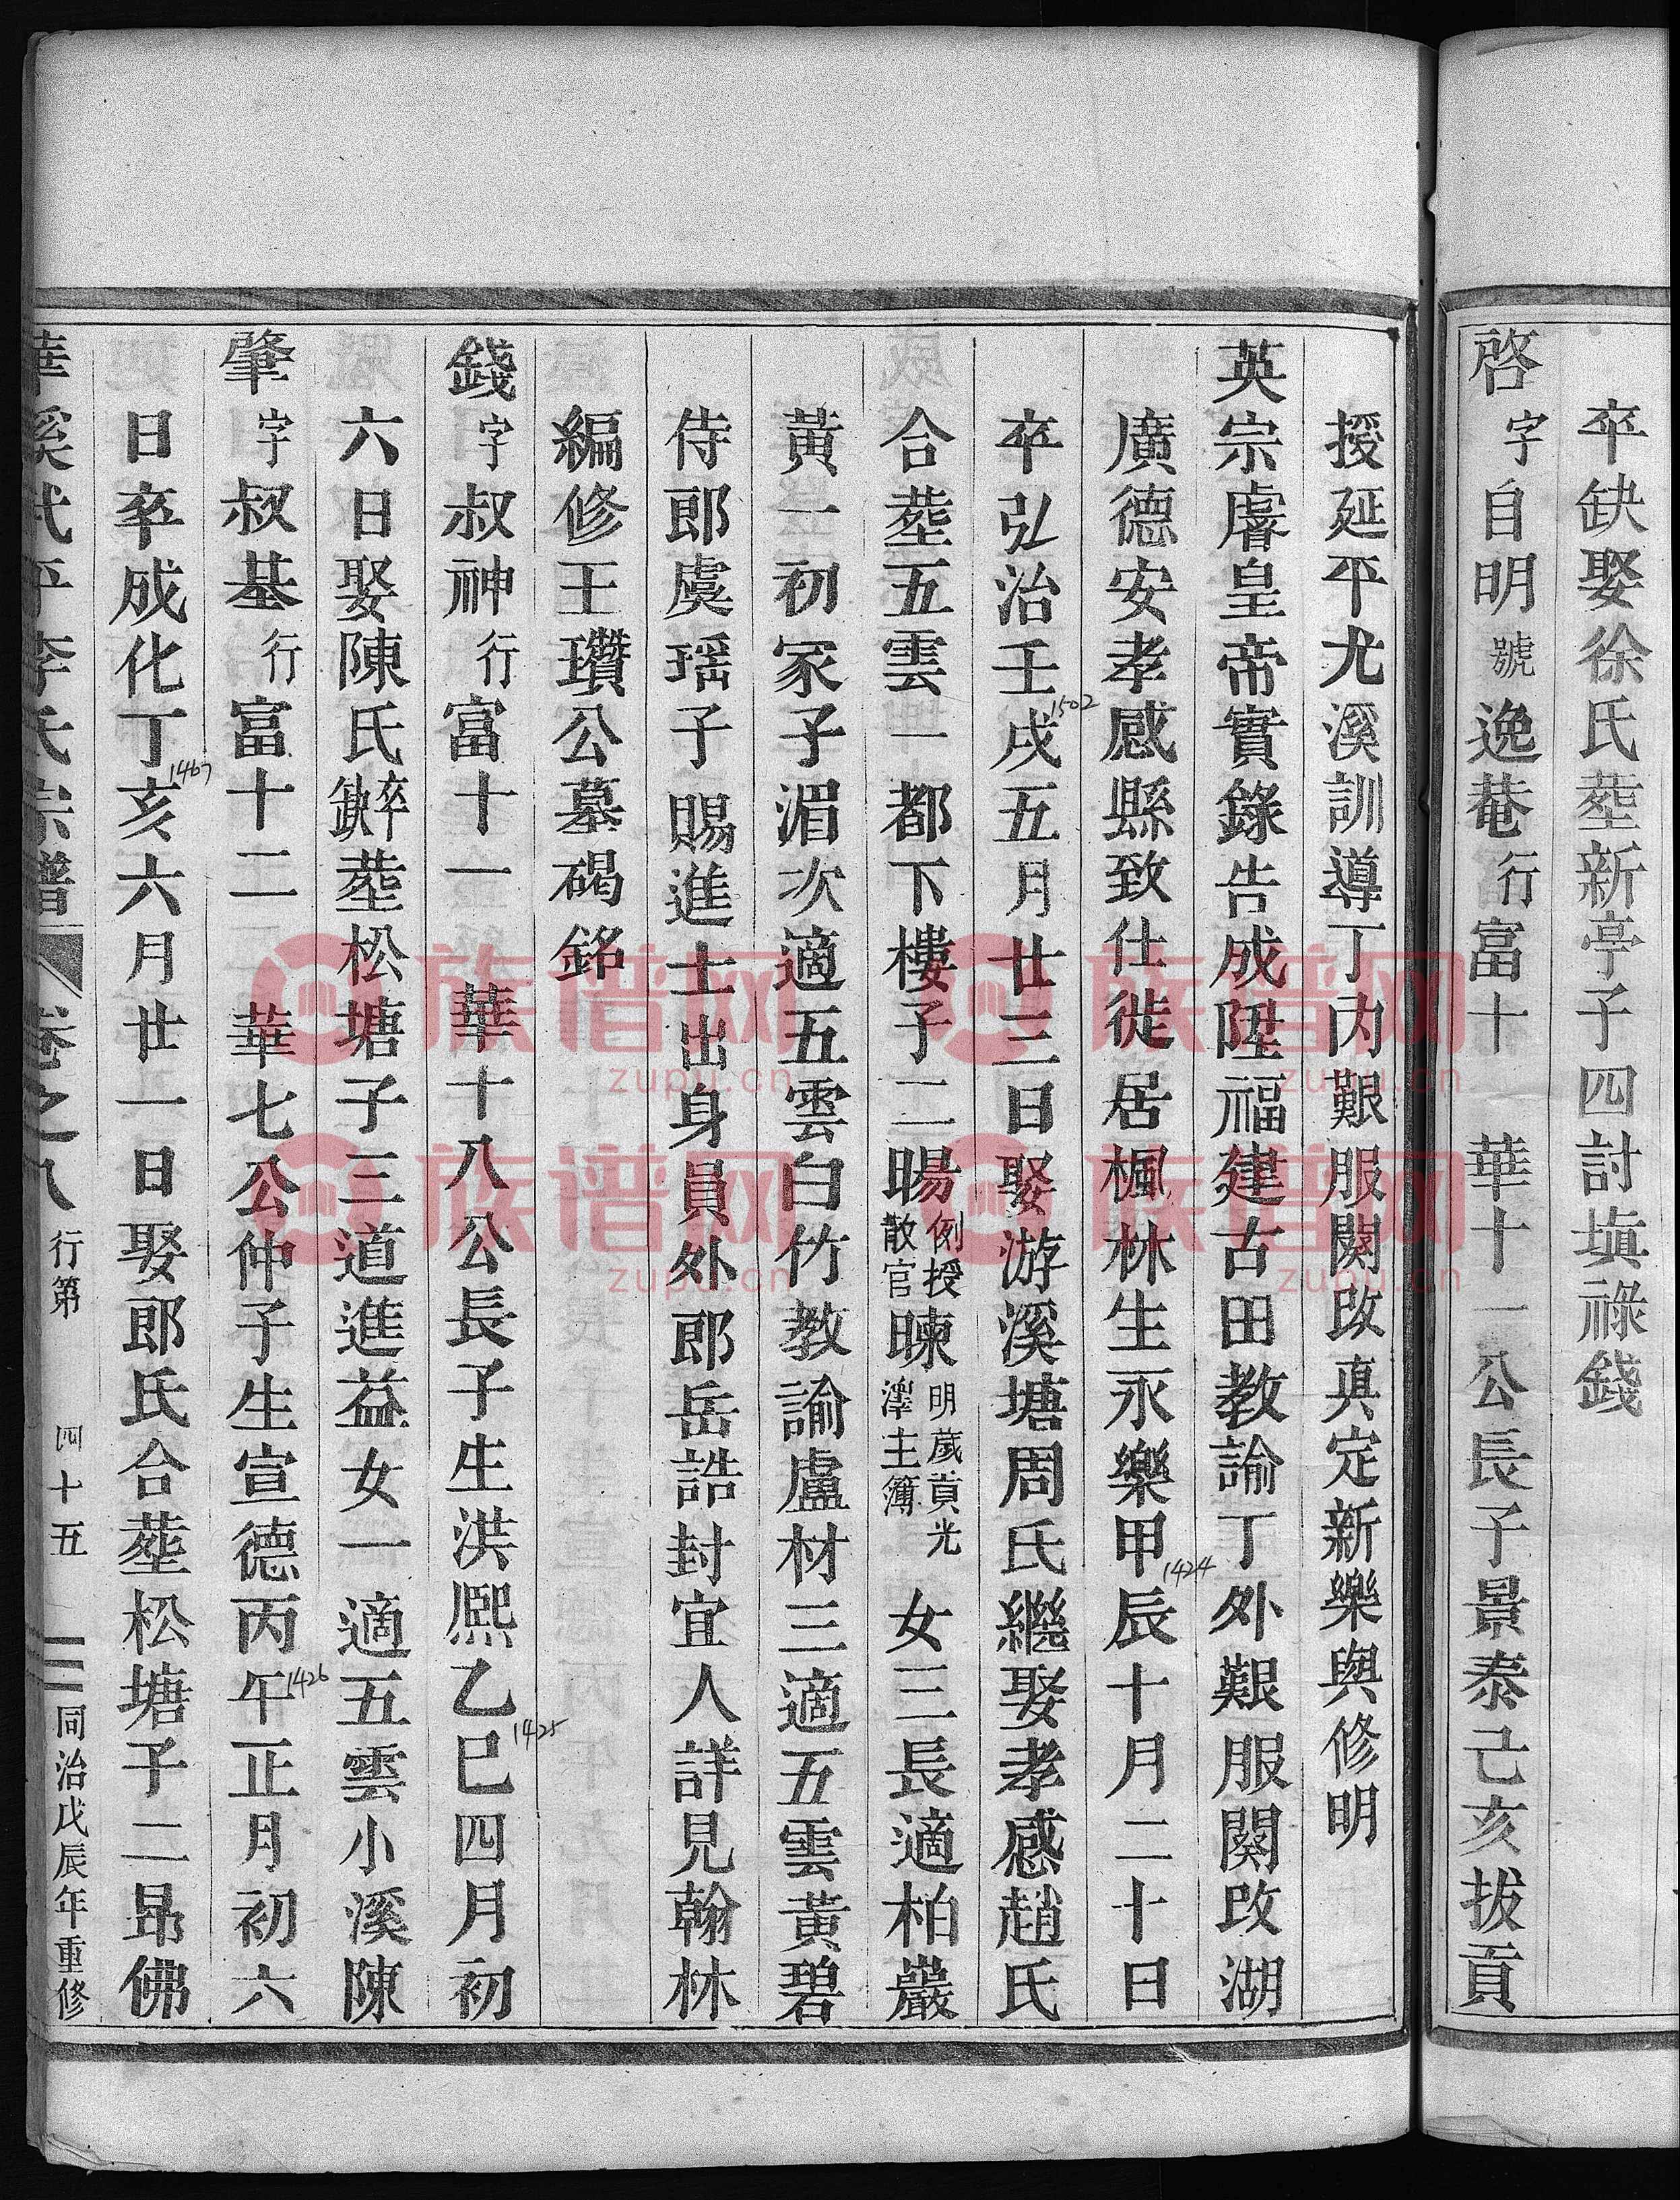 卒缺娶徐氏塟新亭子四討塡祿錢
啓字自明號逸菴行富十　華十一公長子景泰己亥拔貢
授延平尤溪訓導丁內艱服闋改眞定新樂與修明
英宗睿皇帝實錄告成陞福建古田教諭丁外艱服闋改湖
廣德安孝感縣致仕徙居楓林生永樂甲辰十月二十日
1424
卒弘治壬戌五月廿三日娶游溪塘周氏繼娶孝感趙氏
1502
合塟五雲一都下樓子二暘例授散官暕明歲貢光澤主簿　女三長適柏巖
黃一初冢子湄次適五雲白竹教諭盧材三適五雲黃碧
侍郎虞瑶子賜進士出身員外郎岳誥封宜人詳見翰林
編修王瓚公墓碣銘
錢字叔神行富十一　華十八公長子生洪熙乙巳四月初
1425
六日娶陳氏卒缺塟松塘子三道進益女一適五雲小溪陳
肇字叔基行富十二　華七公仲子生宣德丙午正月初六
1426
日卒成化丁亥六月廿一日娶郎氏合塟松塘子二昻佛
1467
華溪武平李氏宗譜　卷之八　行第　四十五　同治戊辰年重修
族谱网
zupu.cn
族谱网
zupu.cn
族谱网
zupu.cn
族谱网
zupu.cn